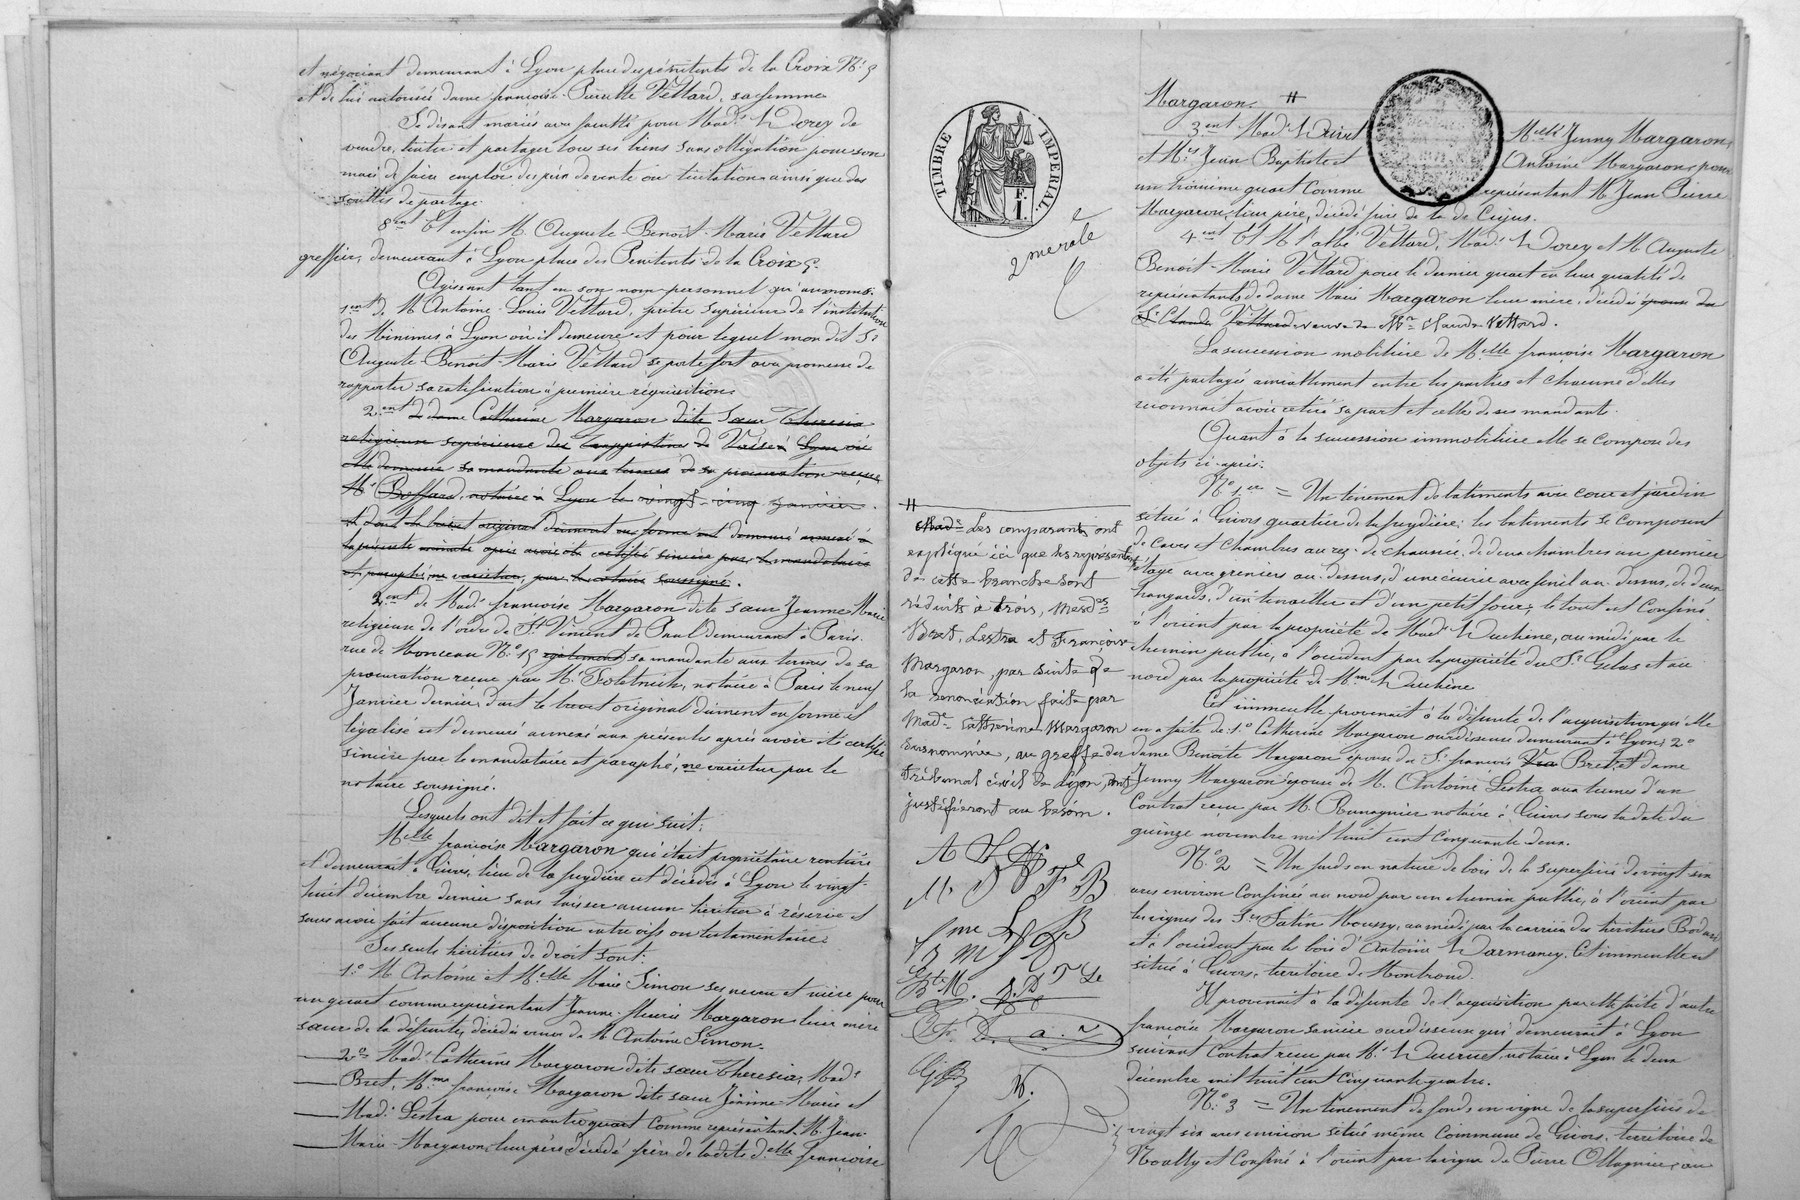 et négociant demeurant à Lyon place des pénitents de la Croix N° 5
et de lui autorisée dame françoise-Pierrette Vettard, sa femme
Se disant mariés avec faculté pour Mad.e Dorey de
vendre, liciter et partager tous ses biens sans obligation pour son
mari de faire emploi des prix de vente ou licitation ainsi que des
soultes de partage.
8ent Et enfin M. Auguste-Benoît-Marie Vettard
greffier, demeurant à Lyon place des Pénitents de la Croix 5.
Agissant tant en son nom personnel qu'au nom:
1ent de M. Antoine-Louis Vettard, prêtre supérieur de l'institution
des Minimes à Lyon où il demeure et pour lequel mon dit Sr
Auguste-Benoît-Marie Vettard se porte fort avec promesse de
rapporter sa ratification à première réquisition
2ent de dame Catherine Margaron dite Sœur Theresia
religieuse supérieure des Trappistines de Vaise à Lyon où
elle demeure sa mandante aux termes de sa procuration reçue
Me Boffard, notaire à Lyon le vingt-cinq janvier
et dont le brevet original dûment en forme est demeuré annexé à
la présente minute après avoir été certifié sincère par le mandataire
et paraphé ne varietur par le notaire soussigné.
2ent de Mad.e françoise Margaron dite sœur Jeanne Marie
religieuse de l'ordre de St Vincent de Paul demeurant à Paris
rue de Monceau N° 15 également sa mandante aux termes de sa
procuration reçue par Me notaire à Paris le neuf
Janvier dernier, dont le brevet original dûment en forme et
légalisé est demeuré annexé aux présentes après avoir été certifié
sincère par le mandataire et paraphé, ne varietur par le
notaire soussigné.
Lesquels ont dit et fait ce qui suit:
Melle françoise Margaron qui était propriétaire rentière
et demeurant à Givors, lieu de la freydière est décédée à Lyon le vingt-
huit décembre dernier sans laisser aucun héritier à réserve et
sans avoir fait aucune disposition entre vifs ou testamentaire.
Ses seuls héritiers de droit sont:
1° M. Antoine et Melle Marie Simon ses neveu et nièce pour
un quart comme représentant Jeanne-Marie Margaron leur mère
sœur de la défunte, décédée veuve de M. Antoine Simon.
2° Mad.e Catherine Margaron dite sœur Theresia, Mad.e
Bret, Mme françoise Margaron dite sœur Jeanne Marie et
Mad.e Lestra pour un autre quart comme représentant M. Jean
Marie Margaron, leur père décédé frère de ladite delle françoise
TIMBRE IMPERIAL.
F.
1.
2me role
Margaron. #
3ent Mad.e Melle Jenny Margaron,
et Mrs Jean Baptiste et Antoine Margaron, pour
un troisième quart comme représentant M. Jean Pierre
Margaron, leur père, décédé frère de la de Cujus.
4ent Et M. l'abbé Vettard, Mad.e Dorey et M. Auguste
Benoît-Marie Vettard pour le dernier quart en leur qualité de
représentants de dame Marie Margaron leur mère, décédée épouse du
Sr Claude Vettard veuve de Mr Claude Vettard.
La succession mobilière de Melle françoise Margaron
a été partagée amiablement entre les parties et chacune d'elles
reconnaît avoir retiré sa part et celle de ses mandants.
Quant à la succession immobilière elle se compose des
objets ci-après:
N° 1er = Un tènement de bâtiments avec cour et jardin
situé à Givors quartier de la freydière; les bâtiments se composent
de caves et chambres au rez-de-chaussée, de deux chambres au premier
étage avec greniers au-dessus, d'une écurie avec fenil au-dessus, de deux
hangards, d'un tenailler et d'un petit four; le tout est confiné
à l'orient par la propriété de Mad.e Duchène, au midi par le
chemin public, à l'occident par la propriété du Sr Gelas et au
nord par la propriété de Mme Duchène
Cet immeuble provenait à la défunte de l'acquisition qu'elle
en a faite de: 1° Catherine Margaron ourdisseuse demeurant à Lyon; 2°
dame Benoîte Margaron épouse du Sr françois Bret, et dame
Jenny Margaron épouse de M. Antoine Lestra aux termes d'un
contrat reçu par Me notaire à Givors sous la date du
quinze novembre mil huit cent cinquante deux.
N° 2 = Un fonds en nature de bois de la superficie de vingt six
ares environ confiné au nord par un chemin public, à l'orient par
les vignes des Srs Moussy, au midi par la carrière des héritiers
et à l'occident par le bois d'Antoine Cet immeuble est
situé à Givors, territoire de Montrond.
Il provenait à la défunte de l'acquisition par elle faite d'autre
françoise Margaron ourdisseuse qui demeurait à Lyon
suivant contrat reçu par Me notaire à Lyon le deux
décembre mil huit cent cinquante quatre.
N° 3 = Un tènement de fonds en vigne de la superficie de
vingt six ares environ situé même commune de Givors, territoire de
et confiné à l'orient par la vigne de Pierre Ollagnier, au
#
Les comparants ont
expliqué ici que les représentants
de cette branche sont
réduits à trois, Mesdes
Bret, Lestra et Françoise
Margaron, par suite de
la renonciation faite par
Made Catherine Margaron
susnommée, au greffe du
Tribunal civil de Lyon,
justifieront au besoin.